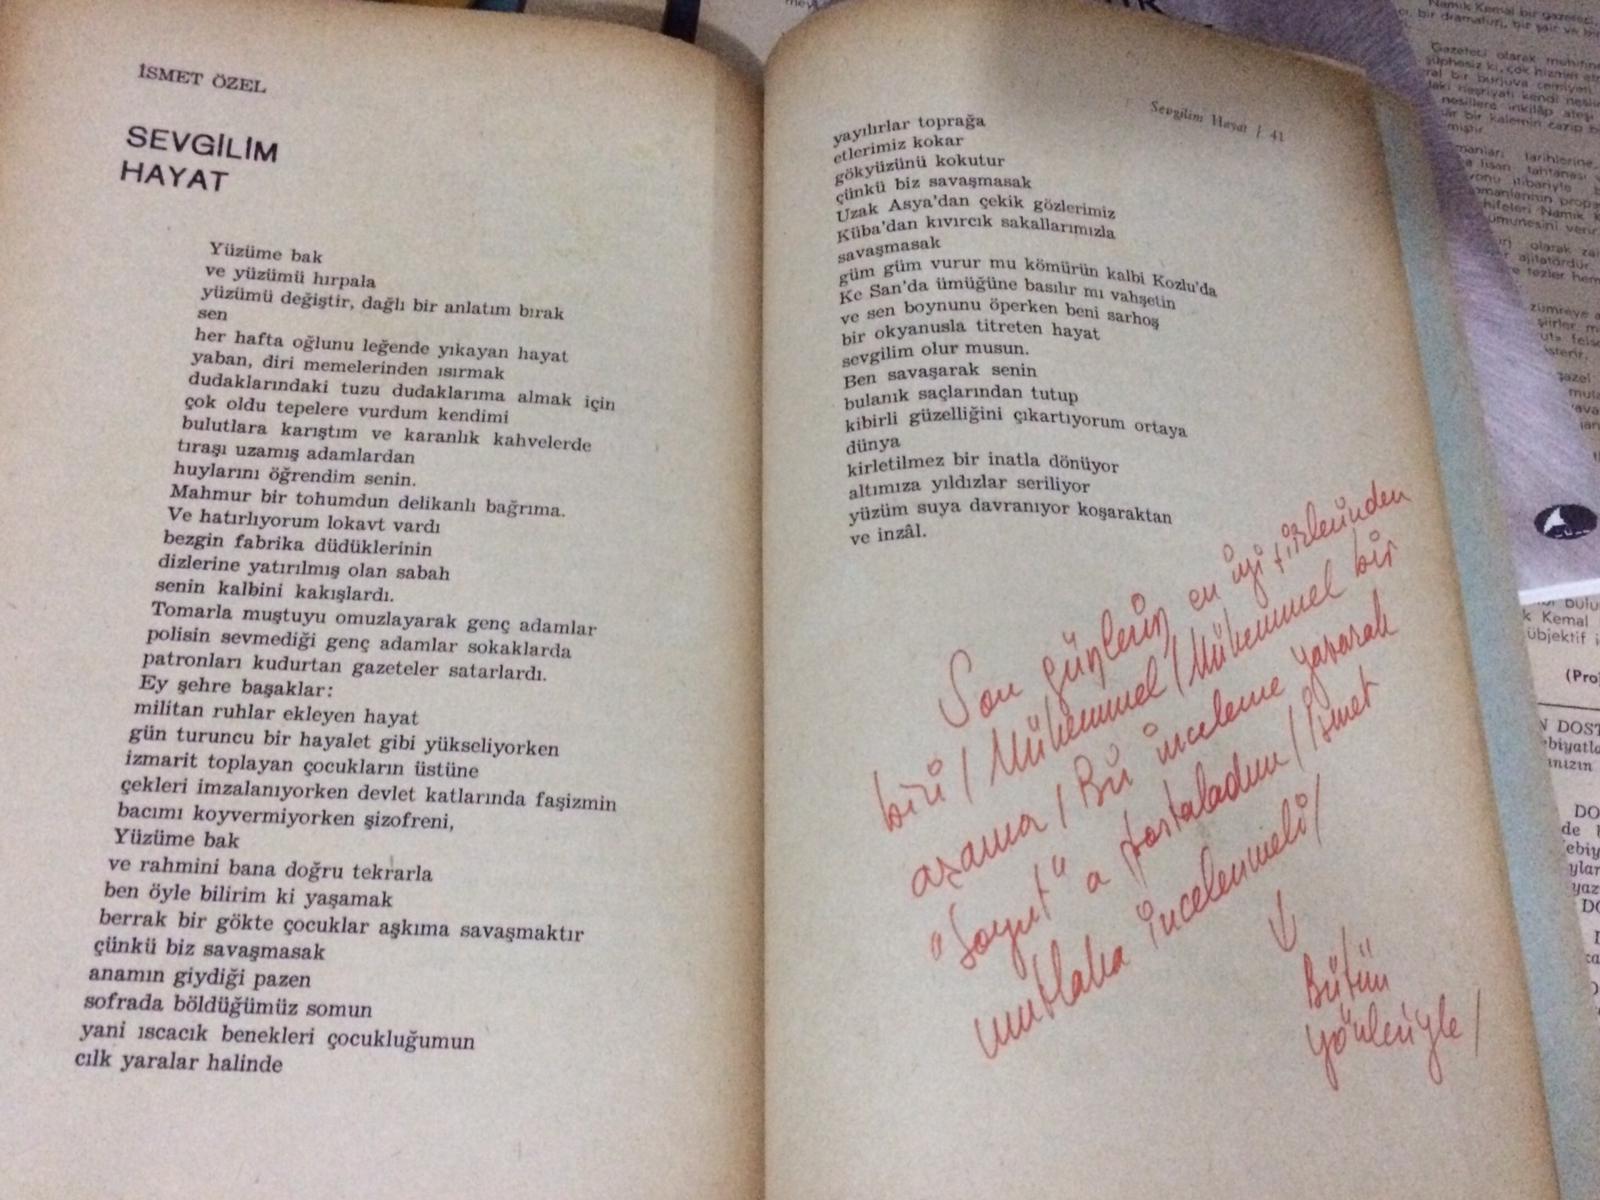 İSMET ÖZEL
SEVGİLİM
HAYAT
Yüzüme bak
ve yüzümü hırpala
yüzümü değiştir, dağlı bir anlatım bırak
sen
her hafta oğlunu leğende yıkayan hayat
yaban, diri memelerinden ısırmak
dudaklarındaki tuzu dudaklarıma almak için
çok oldu tepelere vurdum kendimi
bulutlara karıştım ve karanlık kahvelerde
tıraşı uzamış adamlardan
huylarını öğrendim senin.
Mahmur bir tohumdun delikanlı bağrıma.
Ve hatırlıyorum lokavt vardı
bezgin fabrika düdüklerinin
dizlerine yatırılmış olan sabah
senin kalbini kakışlardı.
Tomarla muştuyu omuzlayarak genç adamlar
polisin sevmediği genç adamlar sokaklarda
patronları kudurtan gazeteler satarlardı.
Ey şehre başaklar:
militan ruhlar ekleyen hayat
gün turuncu bir hayalet gibi yükseliyorken
izmarit toplayan çocukların üstüne
çekleri imzalanıyorken devlet katlarında faşizmin
bacımı koyvermiyorken şizofreni,
Yüzüme bak
ve rahmini bana doğru tekrarla
ben öyle bilirim ki yaşamak
berrak bir gökte çocuklar aşkıma savaşmaktır
çünkü biz savaşmasak
anamın giydiği pazen
sofrada böldüğümüz somun
yani ıscacık benekleri çocukluğumun
cılk yaralar halinde
Sevgilim Hayat / 41
yayılırlar toprağa
etlerimiz kokar
gökyüzünü kokutur
çünkü biz savaşmasak
Uzak Asya'dan çekik gözlerimiz
Küba'dan kıvırcık sakallarımızla
savaşmasak
güm güm vurur mu kömürün kalbi Kozlu'da
Ke San'da ümüğüne basılır mı vahşetin
ve sen boynunu öperken beni sarhoş
bir okyanusla titreten hayat
sevgilim olur musun.
Ben savaşarak senin
bulanık saçlarından tutup
kibirli güzelliğini çıkartıyorum ortaya
dünya
kirletilmez bir inatla dönüyor
altımıza yıldızlar seriliyor
yüzüm suya davranıyor koşaraktan
ve inzâl.
Son günlerin en iyi şiirlerinden
biri / Mükemmel / Mükemmel bir
aşama / Bir inceleme yaparak
"Soyut" a postaladım / İsmet
mutlaka incelenmeli /
↓
Bütün
yönleriyle /
Namık Kemal bir gazeteci,
bir dramaturj, bir şair ve
Gazeteci olarak muhitine
şüphesiz ki, çok hizmet
ral bir burjuva cemiyeti
nesillere inkilâp ateşi
bir kalemin cazip
mıştır.
tarihlerine,
lisan tahtanası
itibariyle
Namık
numunesini verir
olarak
ajitatördür.
tezler
zümreye
şiirler
felse
gazel
k Kemal
übjektif
(Pro
N DOST
ebiyatla
DO